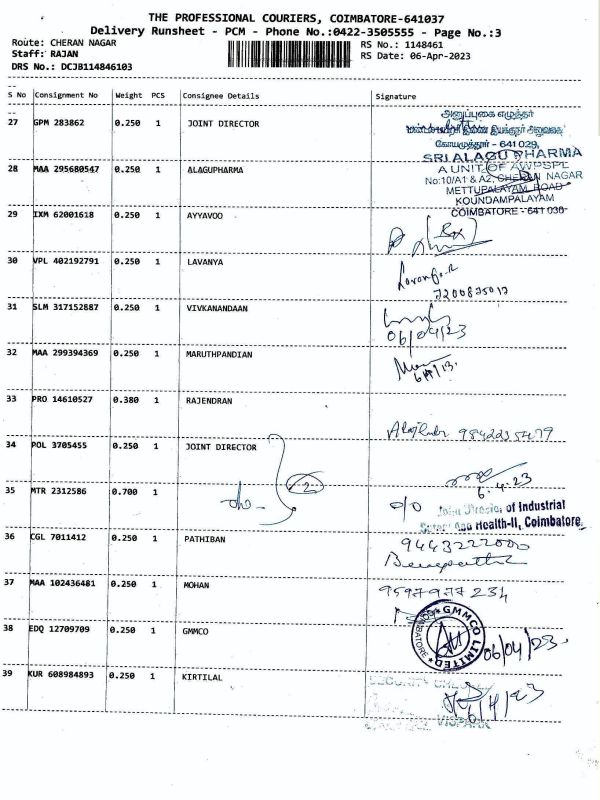 THE PROFESSIONAL COURIERS, COIMBATORE-641037
Delivery Runsheet - PCM - Phone No.:0422-3505555 - Page No.:3
Route: CHERAN NAGAR
RS No.: 1148461
Staff: RAJAN
RS Date: 06-Apr-2023
DRS No.: DCJB114846103
S No Consignment No Weight PCS Consignee Details Signature
அனுப்புகை எழுத்தர்
27 GPM 283862 0.250 1 JOINT DIRECTOR
கோயமுத்தூர் - 641 029.
SRI ALAGU PHARMA
28 MAA 295680547 0.250 1 ALAGUPHARMA
A UNIT OF AWPSPL
No:10/A1 & A2, CHERAN NAGAR
METTUPALAYAM ROAD
KOUNDAMPALAYAM
COIMBATORE - 641 030
29 IXM 62001618 0.250 1 AYYAVOO
30 VPL 402192791 0.250 1 LAVANYA
7200825017
31 SLM 317152887 0.250 1 VIVKANANDAAN
06/04/23
32 MAA 299394369 0.250 1 MARUTHPANDIAN
33 PRO 14610527 0.380 1 RAJENDRAN
9842235479
34 POL 3705455 0.250 1 JOINT DIRECTOR
6.4.23
35 MTR 2312586 0.700 1
do - 2
Joint Director of Industrial
Safety and Health-II, Coimbatore.
36 CGL 7011412 0.250 1 PATHIBAN
9443222000
37 MAA 102436481 0.250 1 MOHAN
9597977234
38 EDQ 12709709 0.250 1 GMMCO
GMMCO LIMITED
COIMBATORE
06/04/23
39 KUR 608984893 0.250 1 KIRTILAL
SECURITY CHECKED